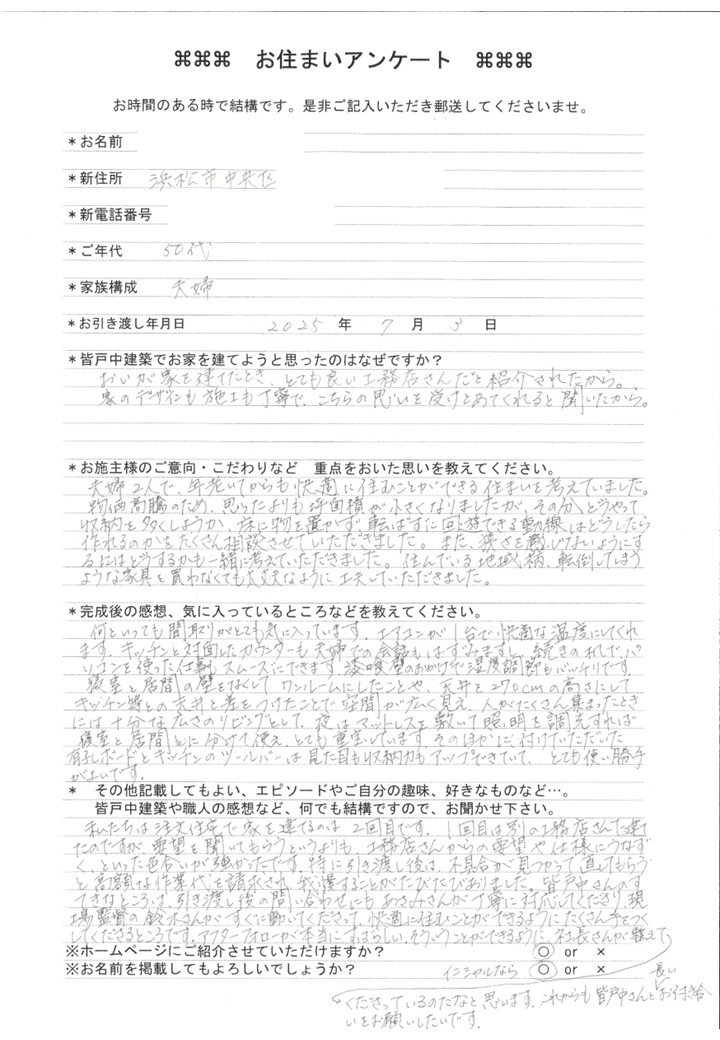 ⌘⌘⌘ お住まいアンケート ⌘⌘⌘
お時間のある時で結構です。是非ご記入いただき郵送してくださいませ。
*お名前
*新住所 浜松市中央区
*新電話番号
*ご年代 50代
*家族構成 夫婦
*お引き渡し年月日 2025 年 7 月 3 日
*皆戸中建築でお家を建てようと思ったのはなぜですか?
おいが家を建てたとき、とても良い工務店さんだと紹介されたから。
家のデザインも施工も丁寧で、こちらの思いを受けとめてくれると聞いたから。
*お施主様のご意向・こだわりなど 重点をおいた思いを教えてください。
夫婦2人で、年老いてからも快適に住むことができる住まいを考えていました。
物価高騰のため、思ったよりも坪面積が小さくなりましたが、その分、どうやって
収納を多くしようか、床に物を置かず、転ばずに回遊できる動線はどうしたら
作れるのかをたくさん相談させていただきました。また、狭さを感じないようにす
るにはどうするかも一緒に考えていただきました。住んでいる地域柄、転倒してしまう
ような家具を買わなくても大丈夫なように工夫していただきました。
*完成後の感想、気に入っているところなどを教えてください。
何といっても間取りがとても気に入っています。エアコンが1台で快適な温度にしてくれ
ます。キッチンと対面したカウンターも夫婦での会話もはずみますし、続きの机でパ
ソコンを使った仕事もスムーズにできます。漆喰壁のおかげで湿度調節もバッチリです。
寝室と居間の壁をなくして、ワンルームにしたことや、天井を270cmの高さにして
キッチン等との天井と差をつけたことで空間が広く見え、人がたくさん集まったとき
には十分な広さのリビングとして、夜はマットレスを敷いて照明を調光すれば
寝室と居間とに分けて使え、とても重宝しています。そのほかに付けていただいた
有孔ボードとキッチンのツールバーは見た目も収納力もアップできていて、とても使い勝手
がよいです。
* その他記載してもよい、エピソードやご自分の趣味、好きなものなど…。
皆戸中建築や職人の感想など、何でも結構ですので、お聞かせ下さい。
私たちは注文住宅で家を建てるのは2回目です。1回目は別の工務店さんで建て
たのですが、要望を聞いてもらうというよりも、工務店さんからの要望や仕様にうなず
く、といった色合いが強かったです。特に引き渡し後は、不具合が見つかって直してもらう
と高額な作業代を請求され、我慢することがたびたびありました。皆戸中さんのす
てきなところは、引き渡し後の問い合わせにもあさみさんが丁寧に対応してくださり、現
場監督の鈴木さんがすぐに動いてくださって、快適に住むことができるようにたくさん手をつく
してくださるところです。アフターフォローが本当にすばらしい。そういうことができるように社長さんが教えて
※ホームページにご紹介させていただけますか? ○ or ×
※お名前を掲載してもよろしいでしょうか? イニシャルなら ○ or ×
くださっているのだなと思います。これからも皆戸中さんと長いお付き合
いをお願いしたいです。